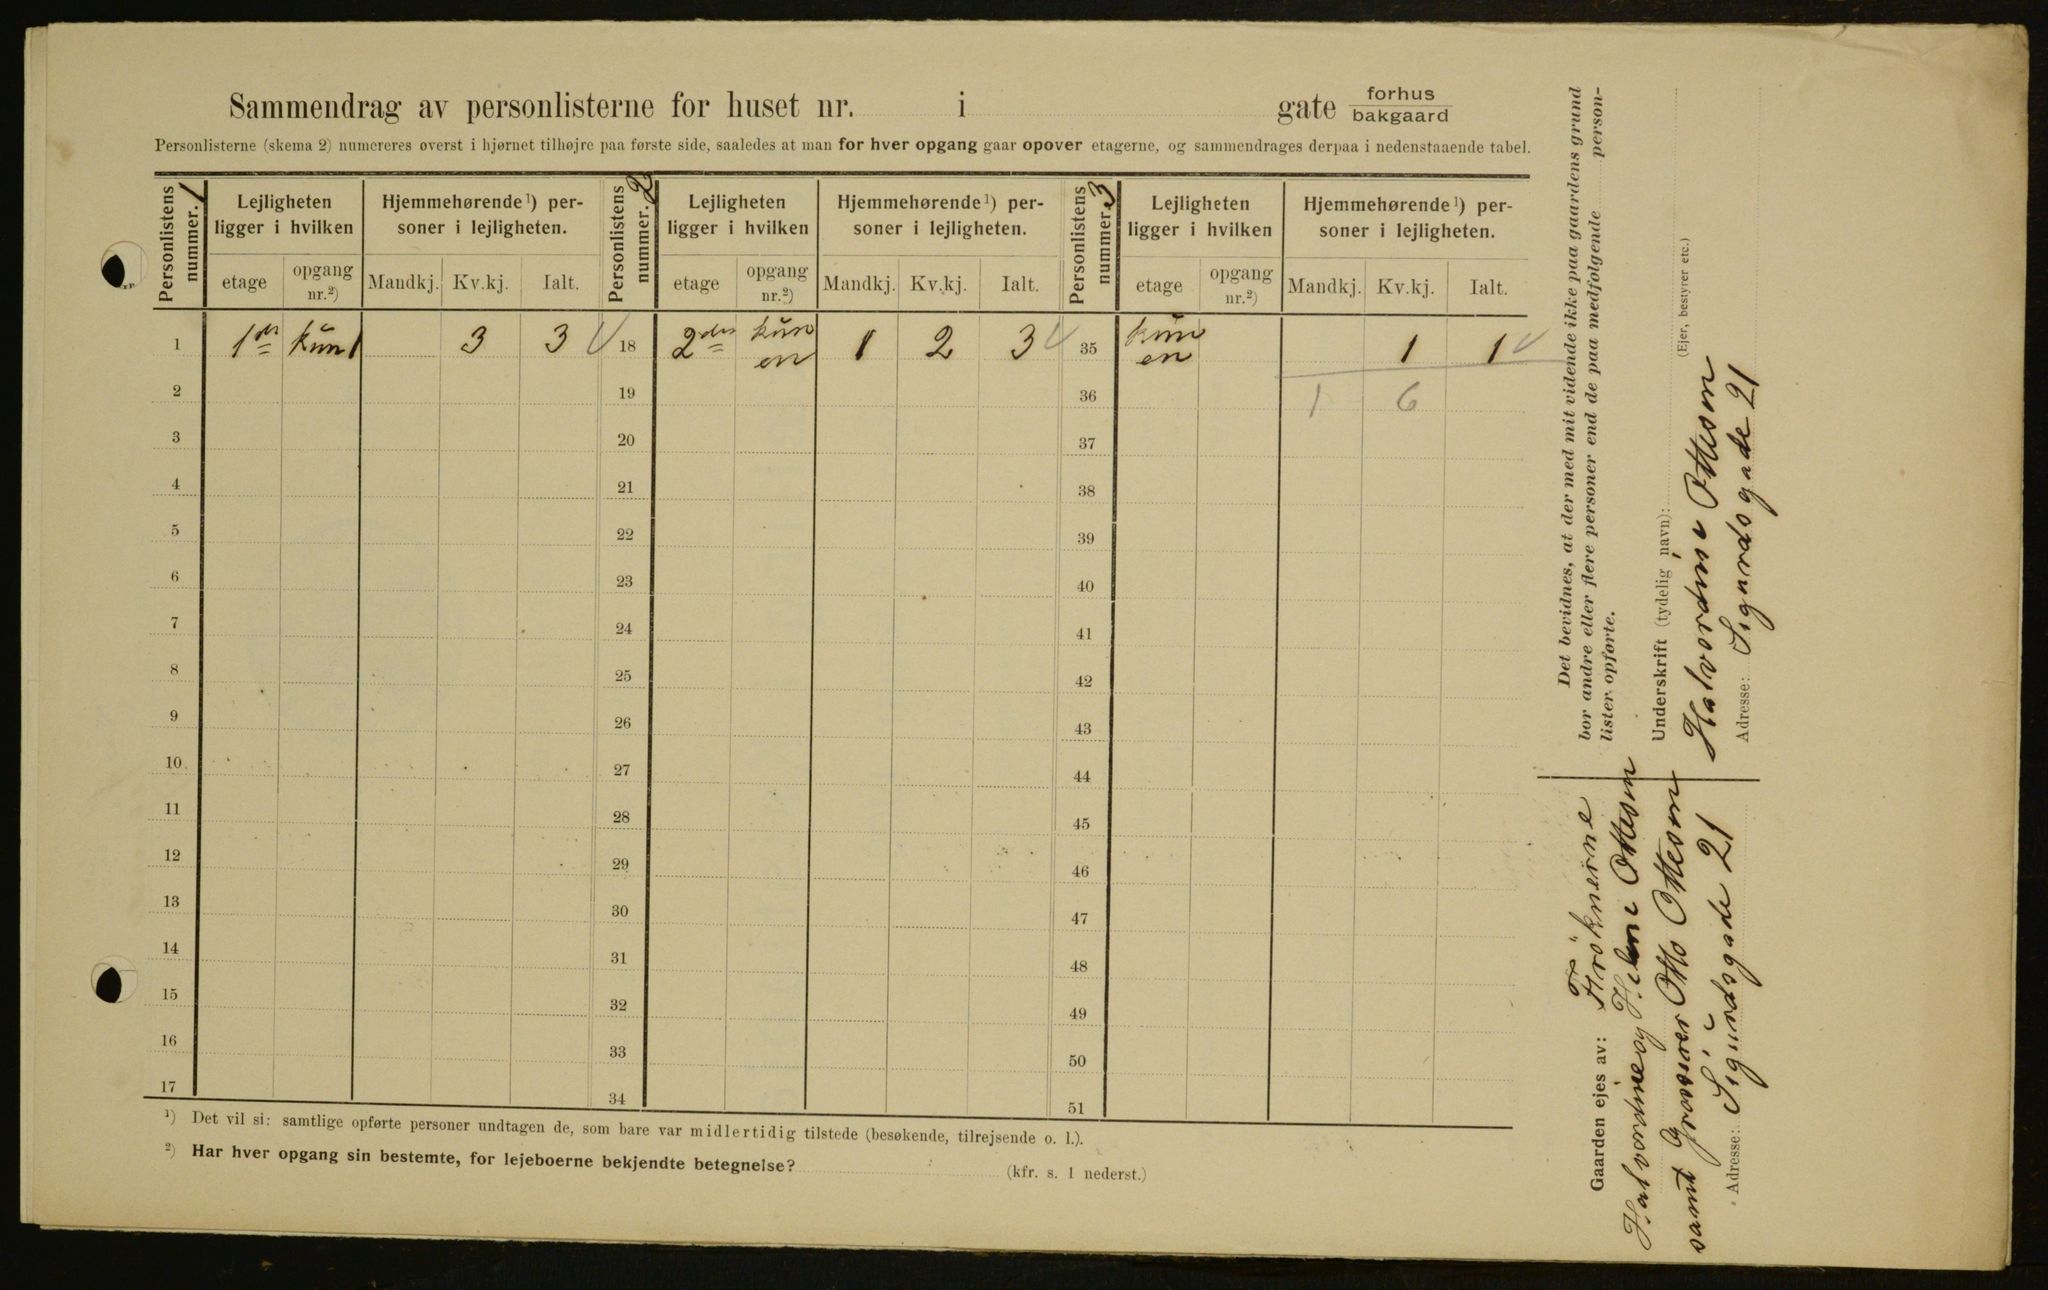 Sammendrag av personlisterne for huset nr. i gate forhus
bakgaard
Personlisterne (skema 2) numereres øverst i hjørnet tilhøjre paa første side, saaledes at man for hver opgang gaar opover etagerne, og sammendrages derpaa i nedenstaaende tabel.
Personlistens nummer. 1 Lejligheten ligger i hvilken Hjemmehørende¹) personer i lejligheten. Personlistens nummer. 2 Lejligheten ligger i hvilken Hjemmehørende¹) personer i lejligheten. Personlistens nummer. 3 Lejligheten ligger i hvilken Hjemmehørende¹) personer i lejligheten.
etage opgang nr.²) Mandkj. Kv.kj. Ialt. etage opgang nr.²) Mandkj. Kv.kj. Ialt. etage opgang nr.²) Mandkj. Kv.kj. Ialt.
1 1ste kun 1 3 3 18 2den kun en 1 2 3 35 kun en 1 1
2 19 36 1 6
3 20 37
4 21 38
5 22 39
6 23 40
7 24 41
8 25 42
9 26 43
10 27 44
11 28 45
12 29 46
13 30 47
14 31 48
15 32 49
16 33 50
17 34 51
¹) Det vil si: samtlige opførte personer undtagen de, som bare var midlertidig tilstede (besøkende, tilrejsende o. l.).
²) Har hver opgang sin bestemte, for lejeboerne bekjendte betegnelse? (kfr. s. 1 nederst.)
Det bevidnes, at der med mit vidende ikke paa gaardens grund
bor andre eller flere personer end de paa medfølgende person-
lister opførte.
Underskrift (tydelig navn): (Ejer, bestyrer etc.)
Halvordine Ottesen
Adresse: Sigurdsgade 21
Gaarden ejes av: Frøknerne
Halvordine og Helene Ottesen
samt Grosserer Otto Ottesen
Adresse: Sigurdsgade 21